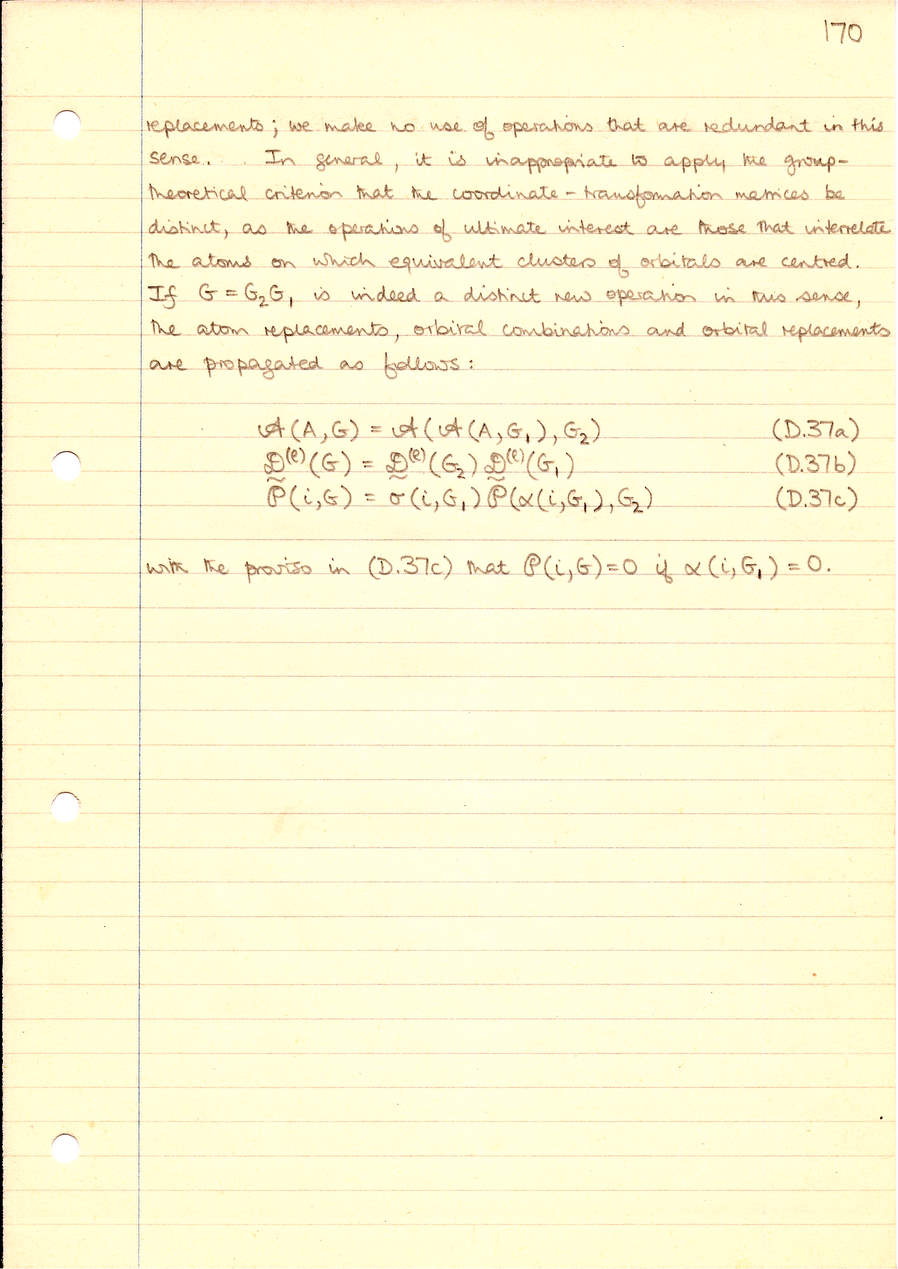 170
replacements; we make no use of operations that are redundant in this
sense. In general, it is inappropriate to apply the group-
theoretical criterion that the coordinate-transformation matrices be
distinct, as the operations of ultimate interest are those that interrelate
the atoms on which equivalent clusters of orbitals are centred.
If G = G₂G₁ is indeed a distinct new operation in this sense,
the atom replacements, orbital combinations and orbital replacements
are propagated as follows:
𝒜(A,G) = 𝒜(𝒜(A,G₁),G₂) (D.37a)
𝒟̰⁽ˡ⁾(G) = 𝒟̰⁽ˡ⁾(G₂) 𝒟̰⁽ˡ⁾(G₁) (D.37b)
𝒫(i,G) = σ(i,G₁) 𝒫(α(i,G₁),G₂) (D.37c)
with the proviso in (D.37c) that 𝒫(i,G)=0 if α(i,G₁) = 0.